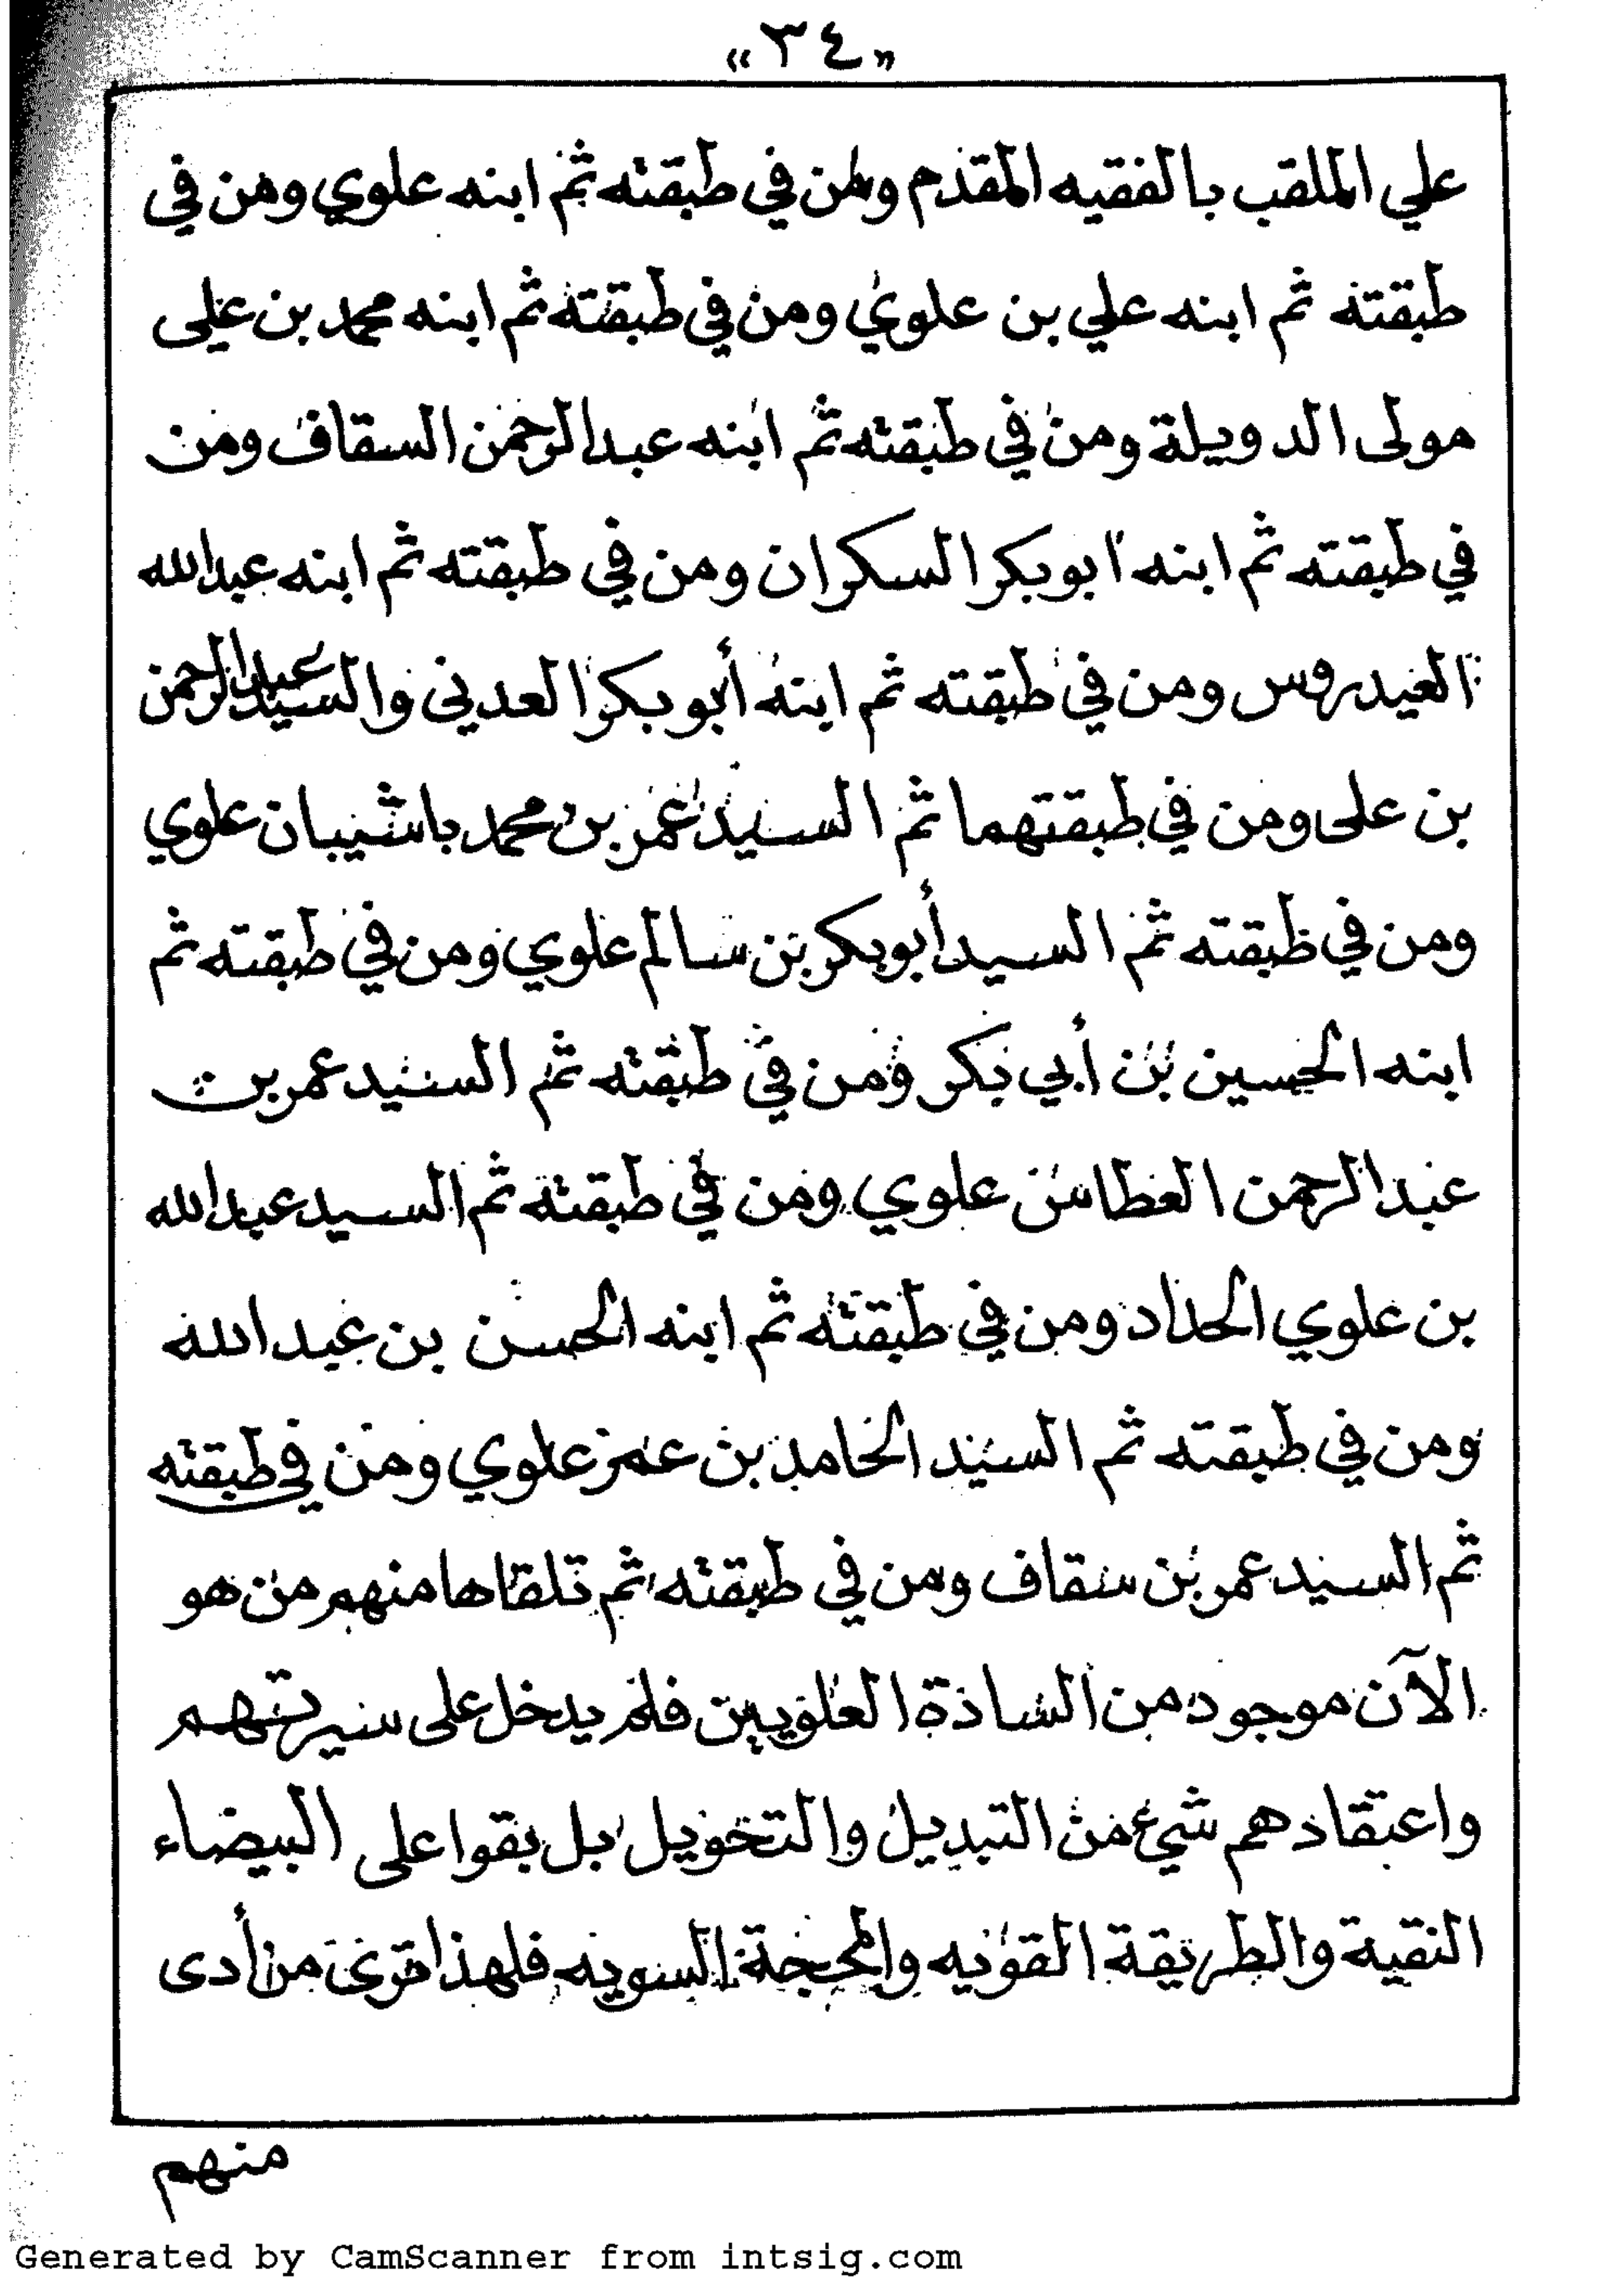 «٣٤»
علي الملقب بالفقيه المقدم ومن في طبقته ثم ابنه علوي ومن في
طبقته ثم ابنه علي بن علوي ومن في طبقته ثم ابنه محمد بن علي
مولى الدويلة ومن في طبقته ثم ابنه عبدالرحمن السقاف ومن
في طبقته ثم ابنه ابوبكر السكران ومن في طبقته ثم ابنه عبدالله
العيدروس ومن في طبقته ثم ابنه أبوبكر العدني والسيد عبدالرحمن
بن على ومن في طبقتهما ثم السيد عمر بن محمد باشيبان علوي
ومن في طبقته ثم السيد أبوبكر بن سالم علوي ومن في طبقته ثم
ابنه الحسين بن أبي بكر ومن في طبقته ثم السيد عمر بن
عبدالرحمن العطاس علوي ومن في طبقته ثم السيد عبدالله
بن علوي الحداد ومن في طبقته ثم ابنه الحسن بن عبدالله
ومن في طبقته ثم السيد الحامد بن عمر علوي ومن في طبقته
ثم السيد عمر بن سقاف ومن في طبقته ثم تلقاها منهم من هو
الآن موجود من السادة العلويين فلم يدخل على سيرتهم
واعتقادهم شيء من التبديل والتحويل بل بقوا على البيضاء
النقية والطريقة القويه والمحجة السويه فلهذا ترى من أدى
منهم
Generated by CamScanner from intsig.com